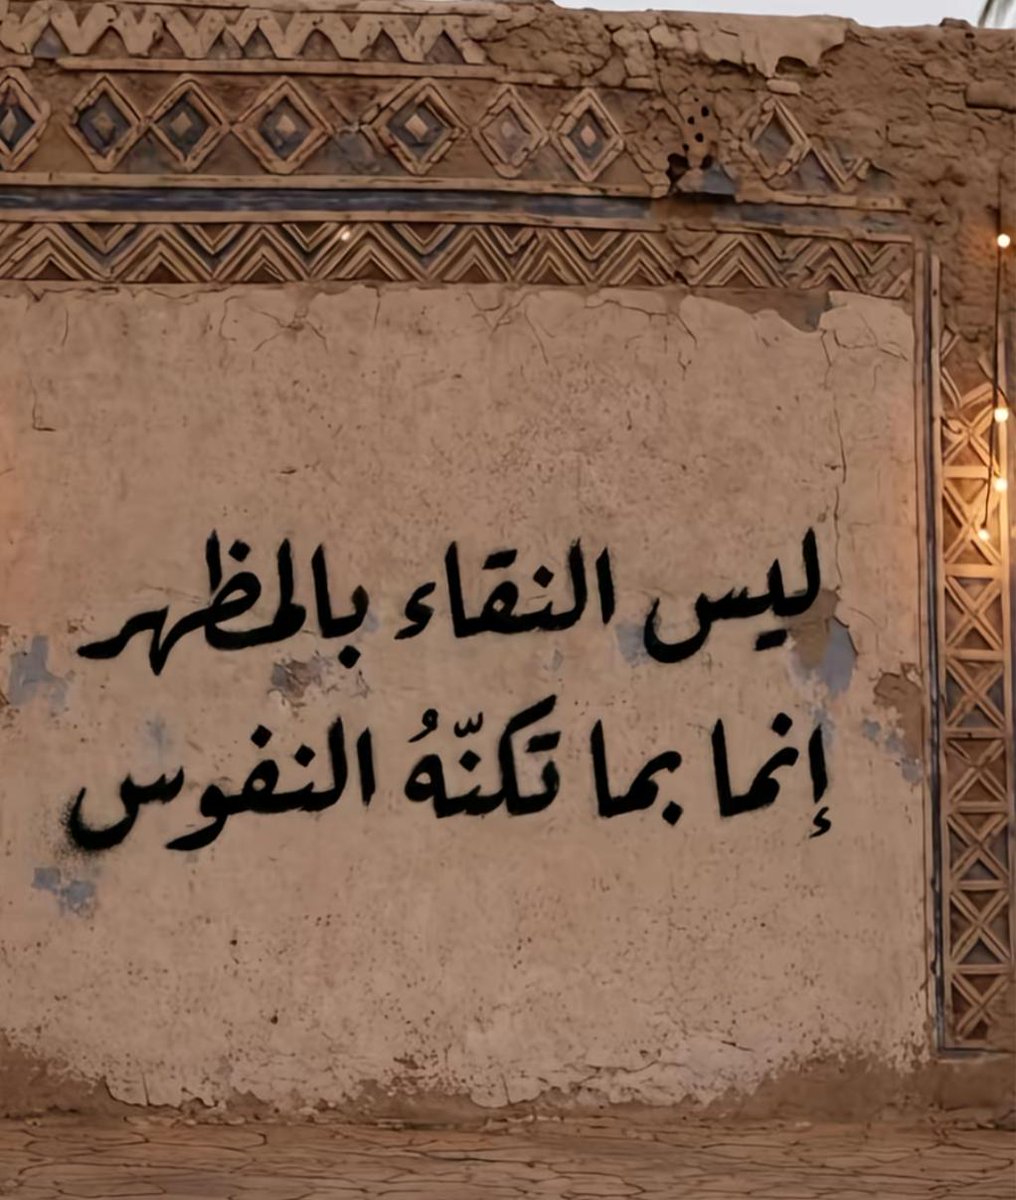 ليس النقاء بالمظهر
إنما بما تكنّهُ النفوس